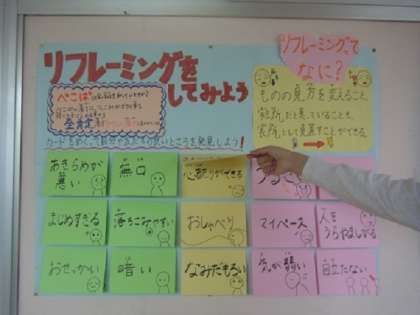 リフレーミングを
してみよう
リフレーミングって
なに?
ものの見方を変えること。
短所だと思っていることを、
長所として見直すことができる。
カードをめくって自分や友だちの良いところを発見しよう!
あきらめが
悪い
無口
まじめすぎる
落ちこみやすい
おしゃべり
マイペース
人を
うらやましがる
おせっかい
暗い
なみだもろい
気が弱い
目立たない